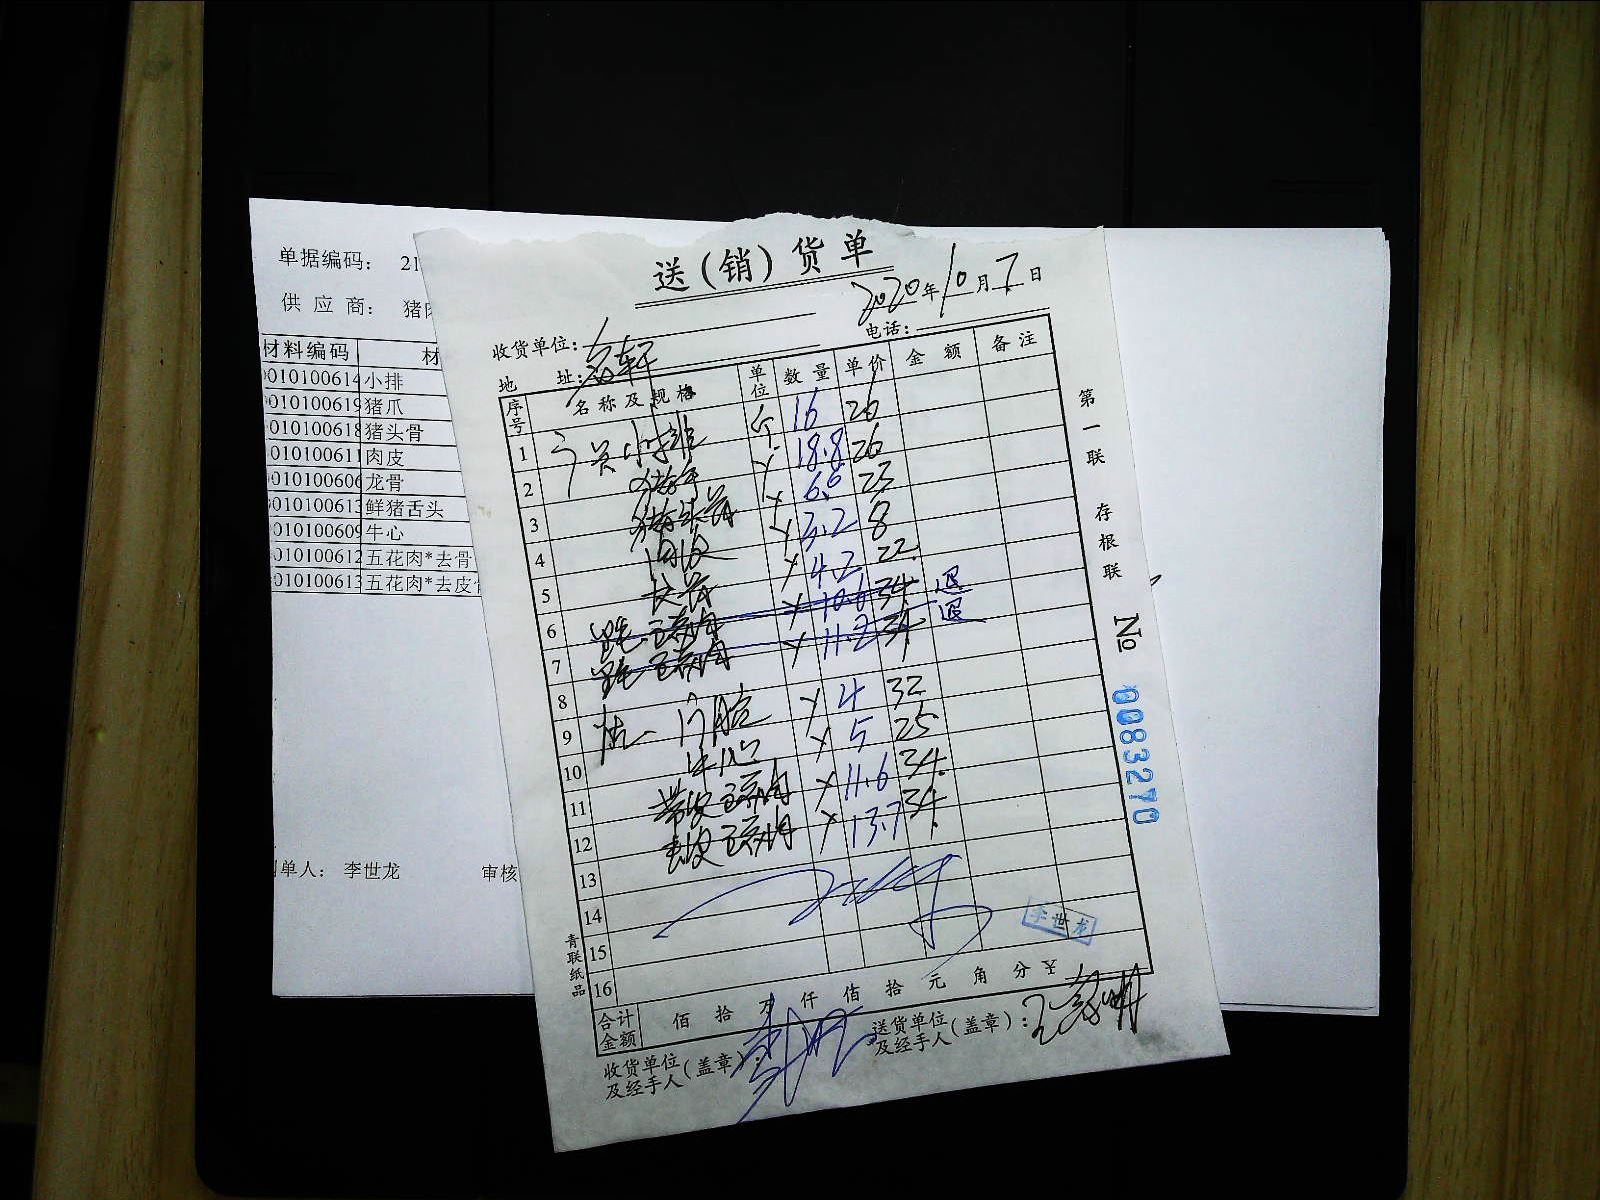 单据编码： 21
供 应 商： 猪肉
材料编码 材
0010100614 小排
0010100619 猪爪
0010100618 猪头骨
0010100611 肉皮
0010100606 龙骨
0010100613 鲜猪舌头
0010100609 牛心
0010100612 五花肉*去骨
0010100613 五花肉*去皮
制单人： 李世龙 审核
送（销）货单
2020年10月7日
收货单位：
电话：
地 址：
序号 名称及规格 单位 数量 单价 金额 备注
1 小排 斤 16 26
2 猪手 18.8 26
3 猪头骨 6.6 23
4 肉皮 3.2 8
5 龙骨 4.2 22
6 五花肉 10.6 34 退
7 五花肉 11.2 34 退
8
9 门腔 4 32
10 牛心 5 25
11 带皮五花肉 11.6 34
12 去皮五花肉 13.7 34
13
14
15
16
合计金额 佰 拾 万 仟 佰 拾 元 角 分 ￥
收货单位及经手人（盖章）：
送货单位及经手人（盖章）：
李世龙
第一联 存根联
No 0083270
青联纸品